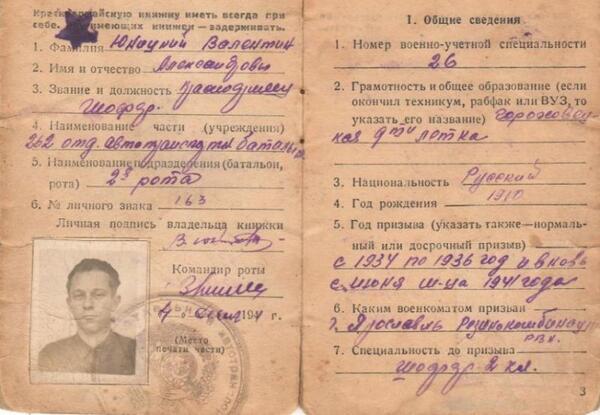 Красноармейскую книжку иметь всегда при
себе. имеющих книжек — задерживать.
1. Фамилия Юницкий Валентин
2. Имя и отчество Александров
3. Звание и должность Красноармеец
Шофер.
4. Наименование части (учреждения)
262 отд. автотранспортн баталь
5. Наименование подразделения (батальон,
рота) 2я рота
6. № личного знака 163
Личная подпись владельца книжки
Командир роты
4 194 г.
(Место
печати части)
I. Общие сведения
1. Номер военно-учетной специальности
26
2. Грамотность и общее образование (если
окончил техникум, рабфак или ВУЗ, то
указать его название) городск
летка
3. Национальность Русский
4. Год рождения 1910
5. Год призыва (указать также—нормаль-
ный или досрочный призыв)
с 1934 по 1936 год и вновь
с июня м-ца 1941 года
6. Каким военкоматом призван
г. Ярославль
РВК.
7. Специальность до призыва
шофер 2 кл.
3